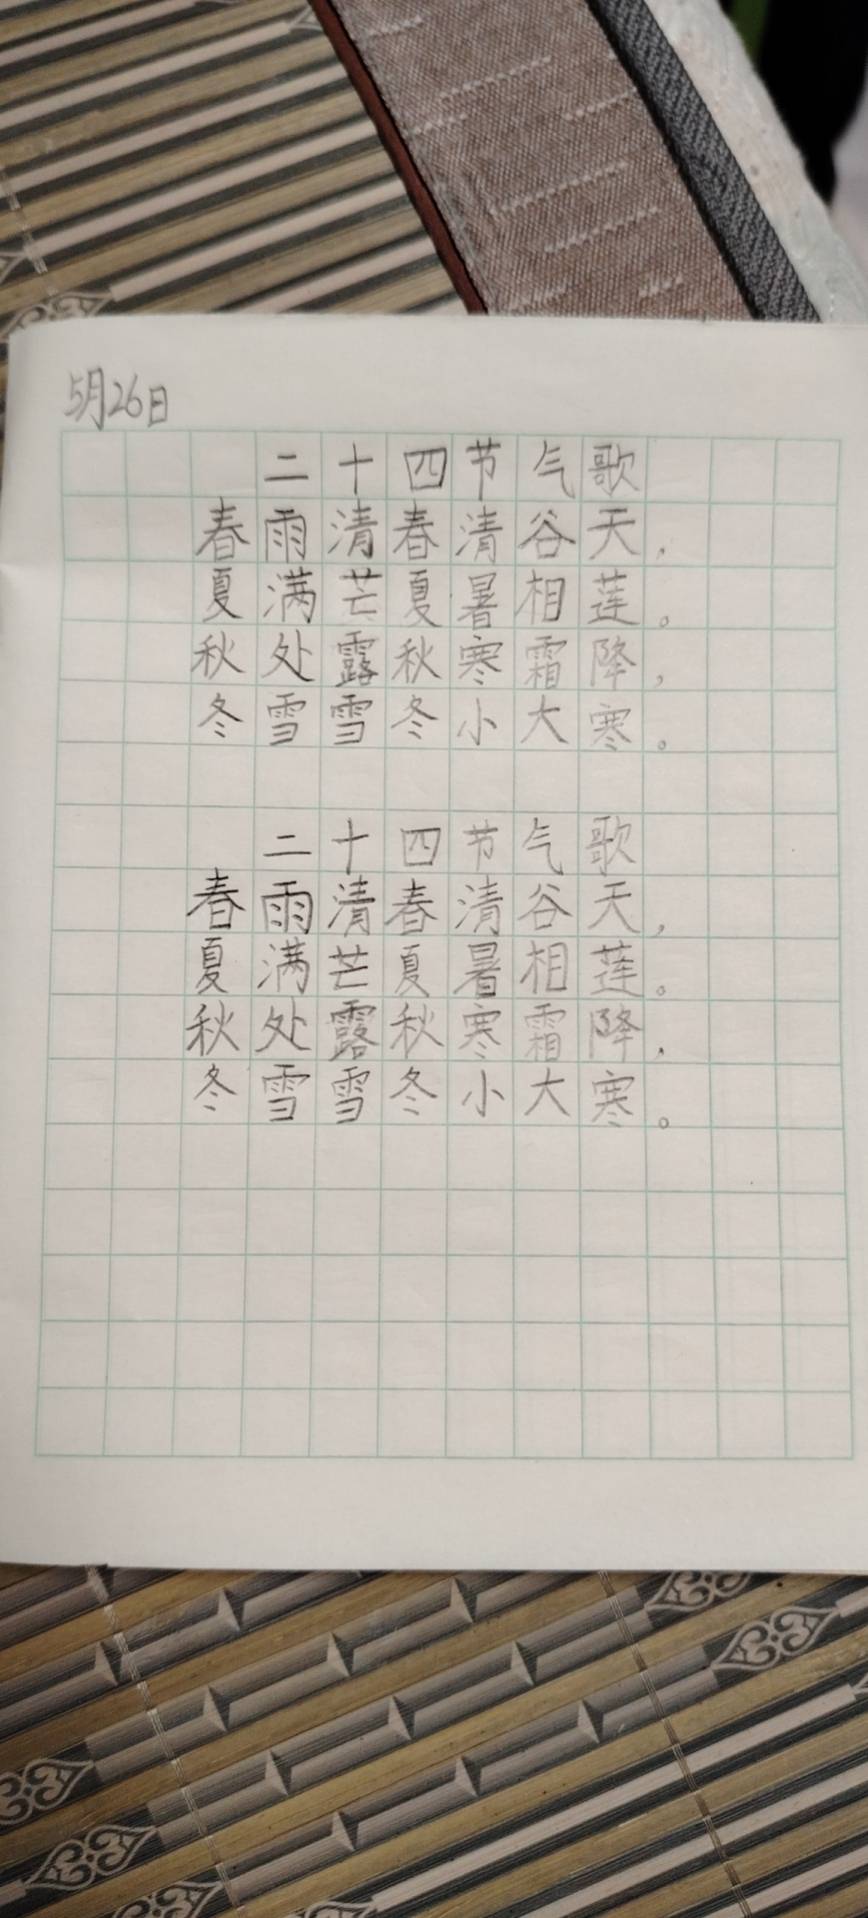 5月26日
二十四节气歌
春雨清春清谷天，
夏满芒夏暑相莲。
秋处露秋寒霜降，
冬雪雪冬小大寒。
二十四节气歌
春雨清春清谷天，
夏满芒夏暑相莲。
秋处露秋寒霜降，
冬雪雪冬小大寒。